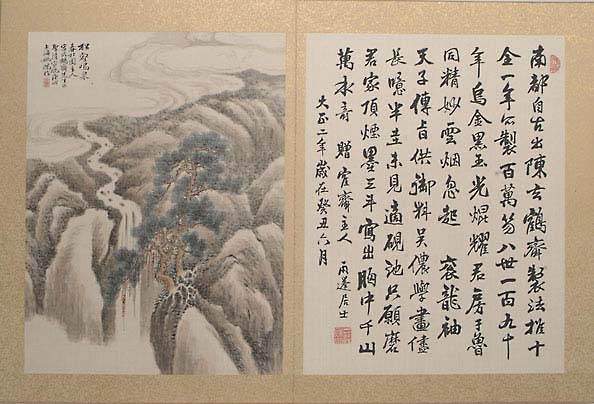 南都自古出陳玄鶴齋製法推十
全一年公製百萬笏八世一百九十
年烏金黑玉光焜耀君房于魯
同精妙雲烟忽起 袞龍袖
天子傳旨供御料吴儂學畫儘
長半圭未見適硯池只願磨
君家頂煙墨三斗寫出胸中千山
萬水奇 贈寉齋主人 雨蓬居士
大正二年歲在癸丑六月
松壑鳴泉
主人
上海